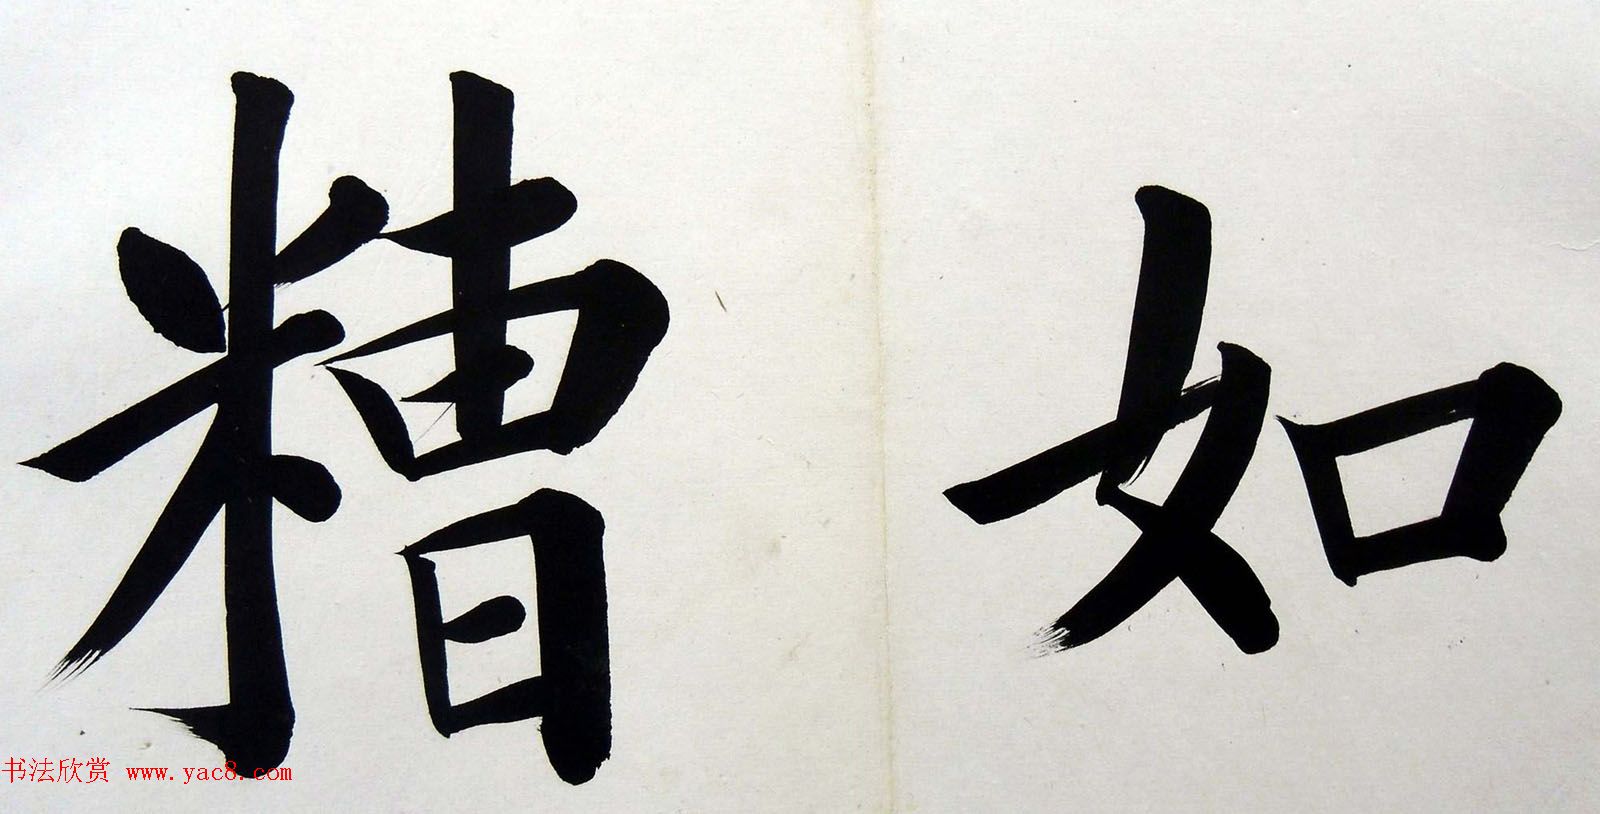 如
糟
书法欣赏 www.yac8.com